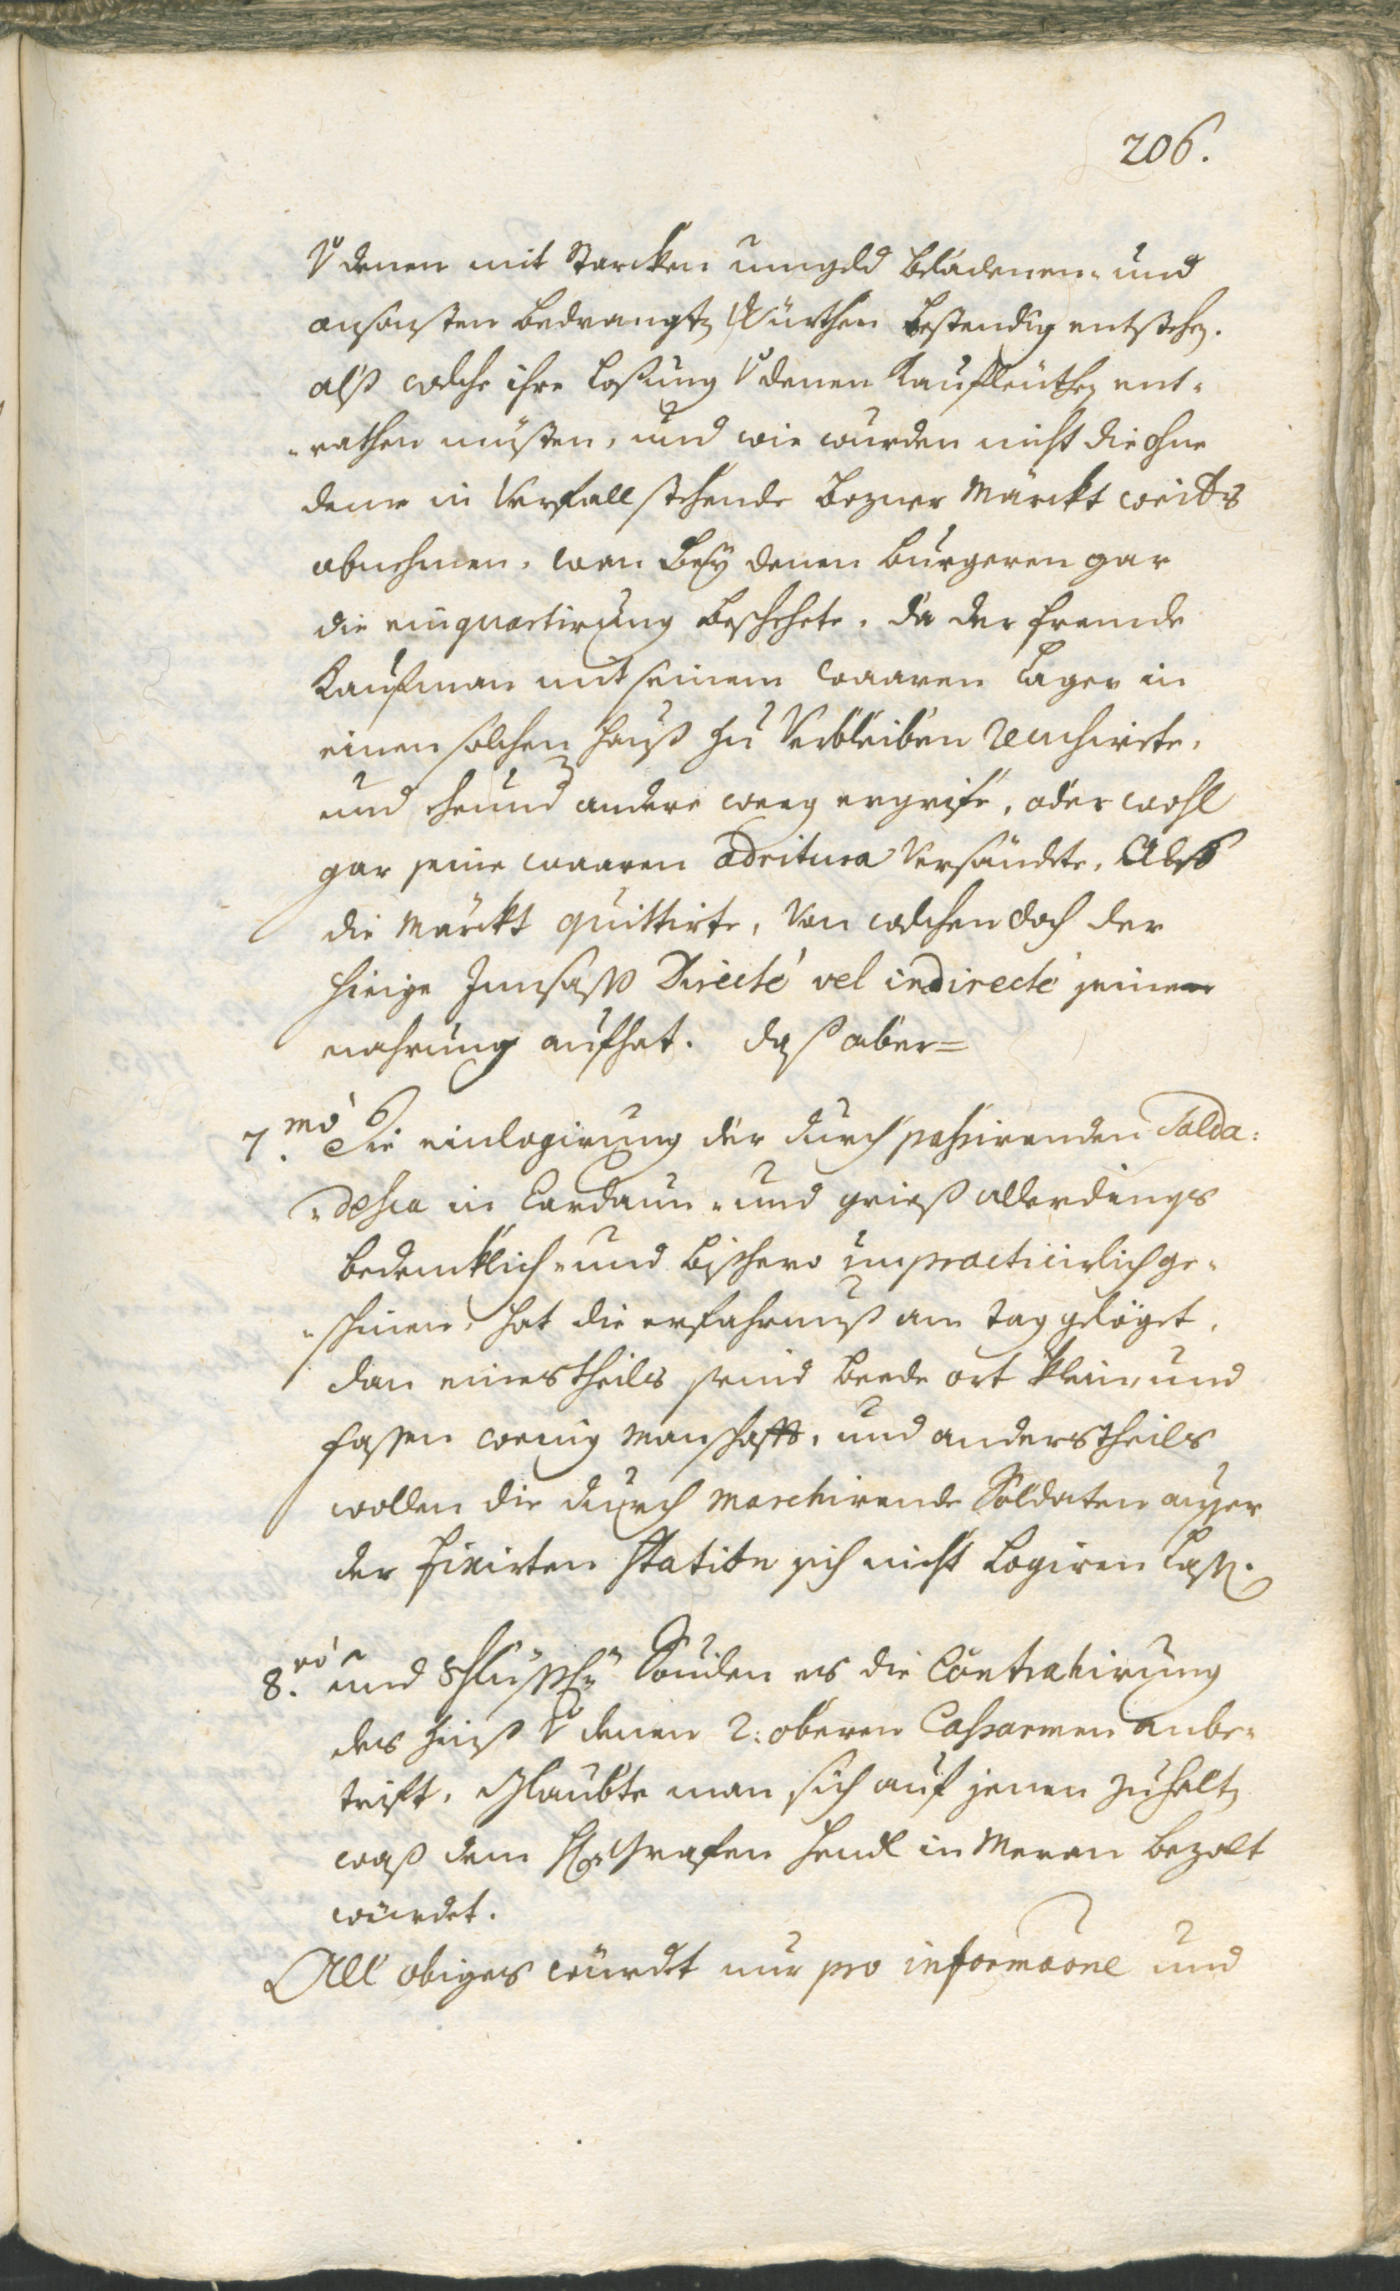 206.
V denen mit Starcken umgeld beladenen- und
ansonsten bedrangtn Würthen bestendig entstehn.
alß welche ihre Loßung V denen Kaufleüthn ent-
-rathen müsten, und wie wurden nicht die ohne
deme in Verfall stehende Bozner Märckt weiters
abnehmen, wan bey denen burgeren gar
die einquartirung beschehete, da der fremde
Kaufman mit seinem waaren Lager in
einen solchen hauß zu Verbleiben reuchirte,
und andere weeg ergrife, oder wohl
gar seine waaren adritura Versändete, Alß
die Märckt quittirte, Von welchen doch der
hieige Innsaß Directè vel indirectè seine
nahrung aufhat. daß aber=
7.mò Die einlogirung der durch passirenden Solda-
-desca in Cardaun- und grieß allerdings
bedencklich- und bißhero impracticirlich ge-
-schinen, hat die erfahrnuß am tag gelöget,
dan eines theils seind beede ort klein, und
fassen wenig Manschafft, und anders theils
wollen die durch marchirende Soldaten ausser
der fixirten Station sich nicht Logiren Lassn.
8.vò und Schlüßl: Souiln es die Contrahirung
des hauß V denen 2: oberen Cassarmen anbe-
trift, Glaubte man sich auf jenen zuhaltn
waß dem H: Grafen Hendl in Meran bezalt
würdet.
All obiges würdet nur pro informaone und